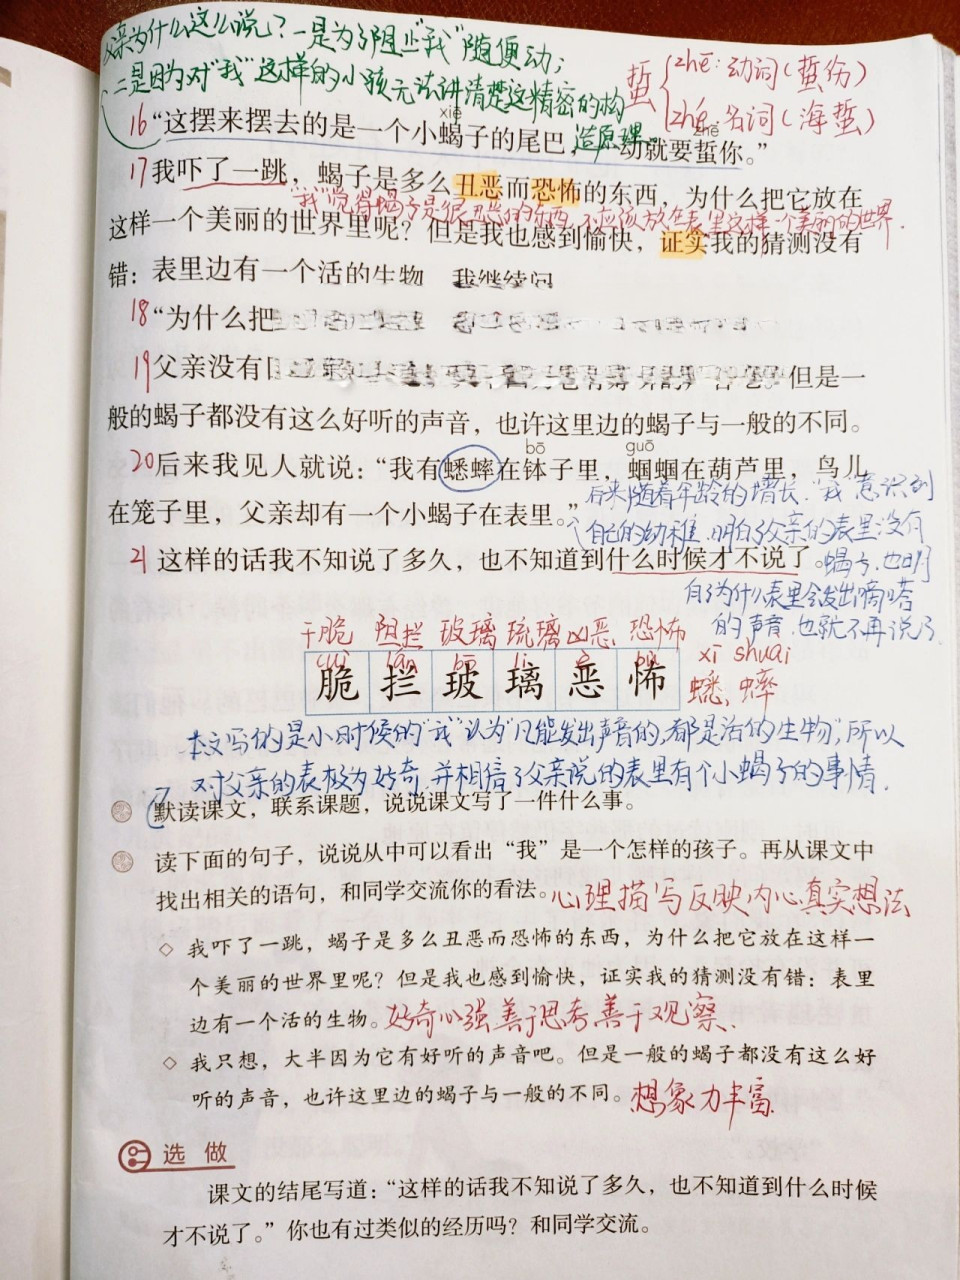 父亲为什么这么说？一是为了阻止“我”随便动；
二是因为对“我”这样的小孩无法讲清楚这精密的构
造原理。
蜇
zhē：动词（蜇伤）
zhé：名词（海蜇）
xiē
zhē
16“这摆来摆去的是一个小蝎子的尾巴，一动就要蜇你。”
17我吓了一跳，蝎子是多么丑恶而恐怖的东西，为什么把它放在
“我”觉得蝎子是很丑恶的东西，不应该放在表里这样一个美丽的世界.
这样一个美丽的世界里呢？但是我也感到愉快，证实我的猜测没有
错：表里边有一个活的生物 我继续问
18“为什么把
19父亲没有 但是一
般的蝎子都没有这么好听的声音，也许这里边的蝎子与一般的不同。
bō guō
20后来我见人就说：“我有蟋蟀在钵子里，蝈蝈在葫芦里，鸟儿
在笼子里，父亲却有一个小蝎子在表里。”
后来随着年龄的增长，“我”意识到
自己的幼稚，明白了父亲的表里没有
蝎子，也明
白了为什么表里会发出嘀嗒
的声音，也就不再说了
21这样的话我不知说了多久，也不知道到什么时候才不说了。
干脆 阻拦 玻璃 琉璃 凶恶 恐怖
cuì lán bō lí è bù
脆 拦 玻 璃 恶 怖
xī shuài
蟋 蟀
本文写的是小时候的“我”认为“凡能发出声音的，都是活的生物”，所以
对父亲的表极为好奇，并相信了父亲说的表里有个小蝎子的事情.
默读课文，联系课题，说说课文写了一件什么事。
读下面的句子，说说从中可以看出“我”是一个怎样的孩子。再从课文中
找出相关的语句，和同学交流你的看法。心理描写反映内心真实想法
◇ 我吓了一跳，蝎子是多么丑恶而恐怖的东西，为什么把它放在这样一
个美丽的世界里呢？但是我也感到愉快，证实我的猜测没有错：表里
边有一个活的生物。好奇心强善于思考善于观察.
◇ 我只想，大半因为它有好听的声音吧。但是一般的蝎子都没有这么好
听的声音，也许这里边的蝎子与一般的不同。想象力丰富
选做
课文的结尾写道：“这样的话我不知说了多久，也不知道到什么时候
才不说了。”你也有过类似的经历吗？和同学交流。